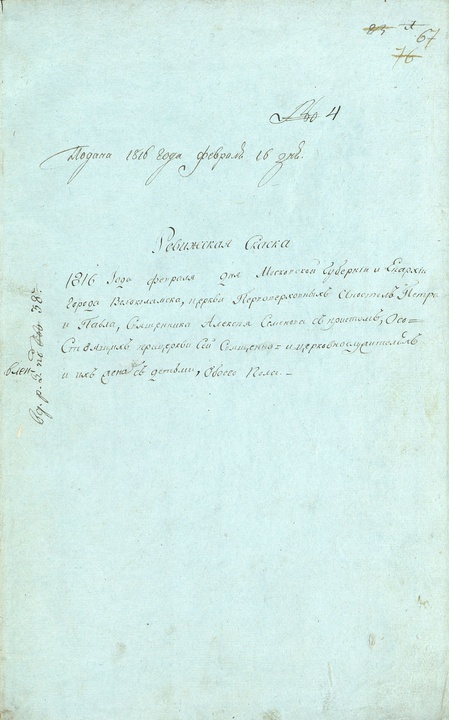 83 А
67
76
№ 4
Подана 1816 года февраля 16 дня.
Ревижская Скаска
1816 Года февраля дня Московской Губернии и Епархии
Города Волоколамска, церкви Первоверховныхъ Апостолъ Петра
и Павла, Священника Алексея Семенова съ притомъ, о со=
Стоящихъ прицеркви Сей Священно= и церковнослужителяхъ
и ихъ женъ съ детьми, обоего Пола. –